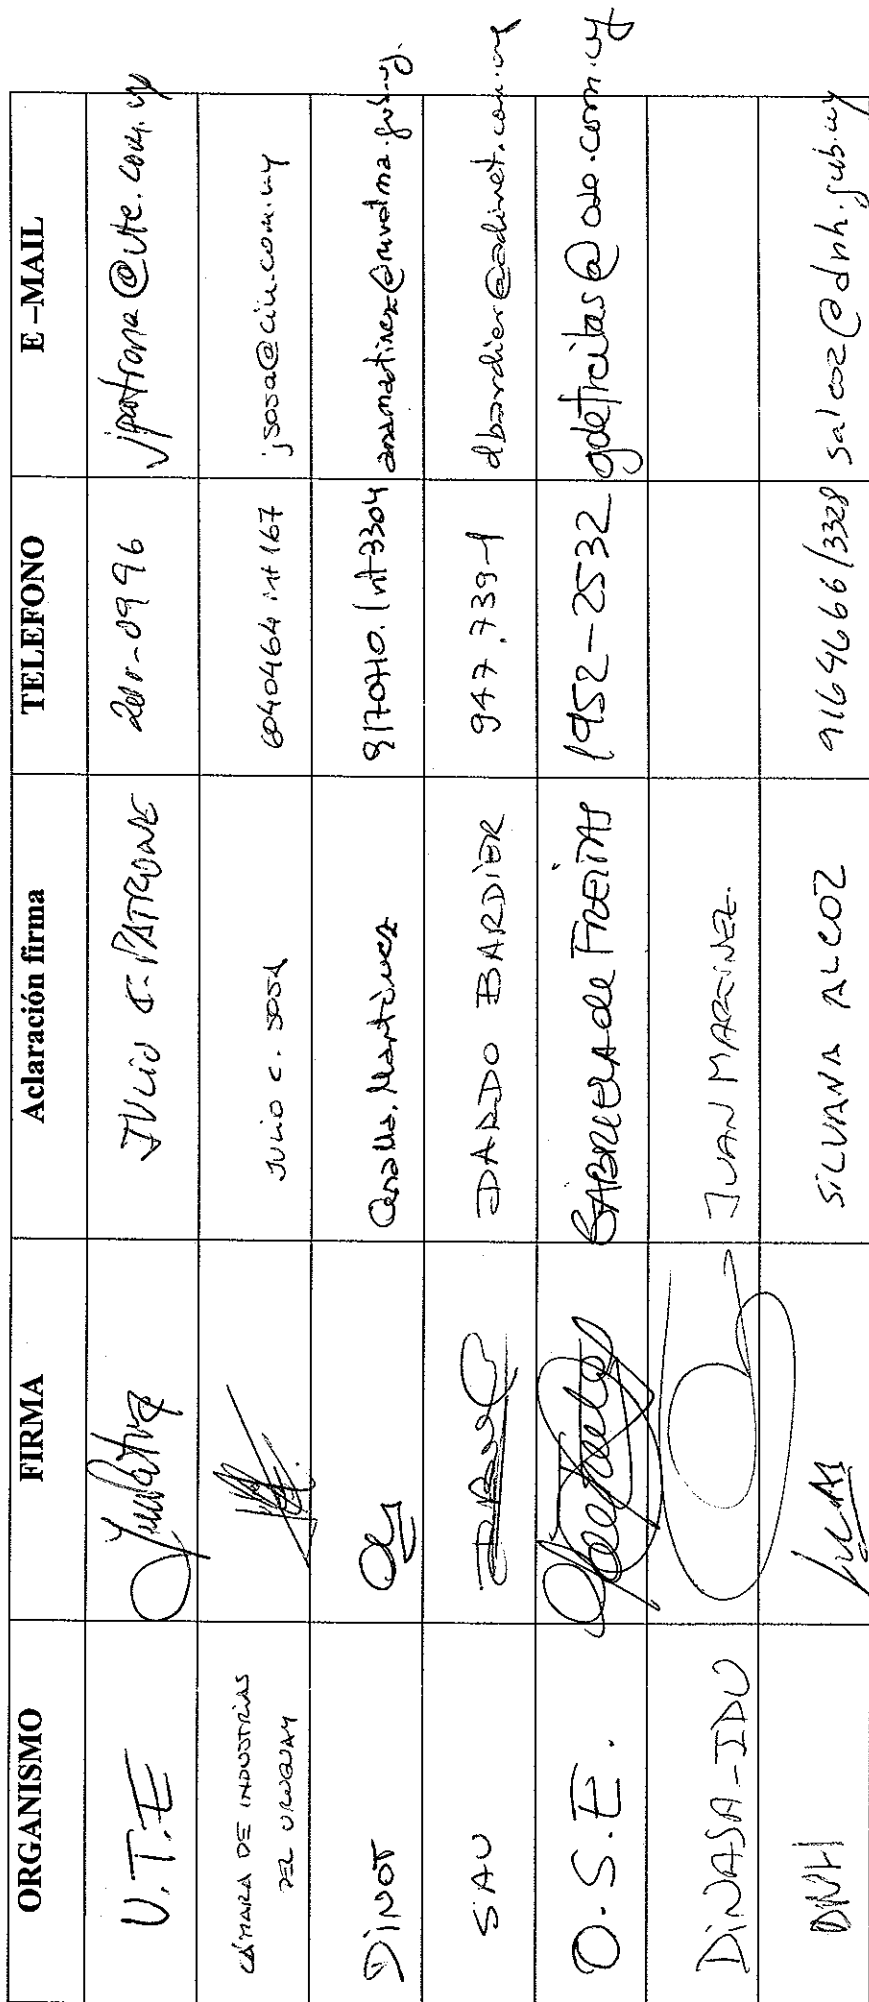 ORGANISMO FIRMA Aclaración firma TELEFONO E-MAIL
U.T.E JULIO C. PATRONE jpatrone@ute.com.uy
CÁMARA DE INDUSTRIAS
DEL URUGUAY JULIO C. SOSA 6040464 int 167 jsosa@ciu.com.uy
DINOT Martínez 9170710. Int 3304 anamartinez@mvotma.gub.uy.
SAU DARDO BARDIER 947.739-1 dbardier@adinet.com.uy
O.S.E. GABRIELA de FREITAS 1952-2532 gdefreitas@ose.com.uy
DINASA-IDU JUAN MARTINEZ.
DNH SILVANA ALCOZ 9164666/3328 salcoz@dnh.gub.uy